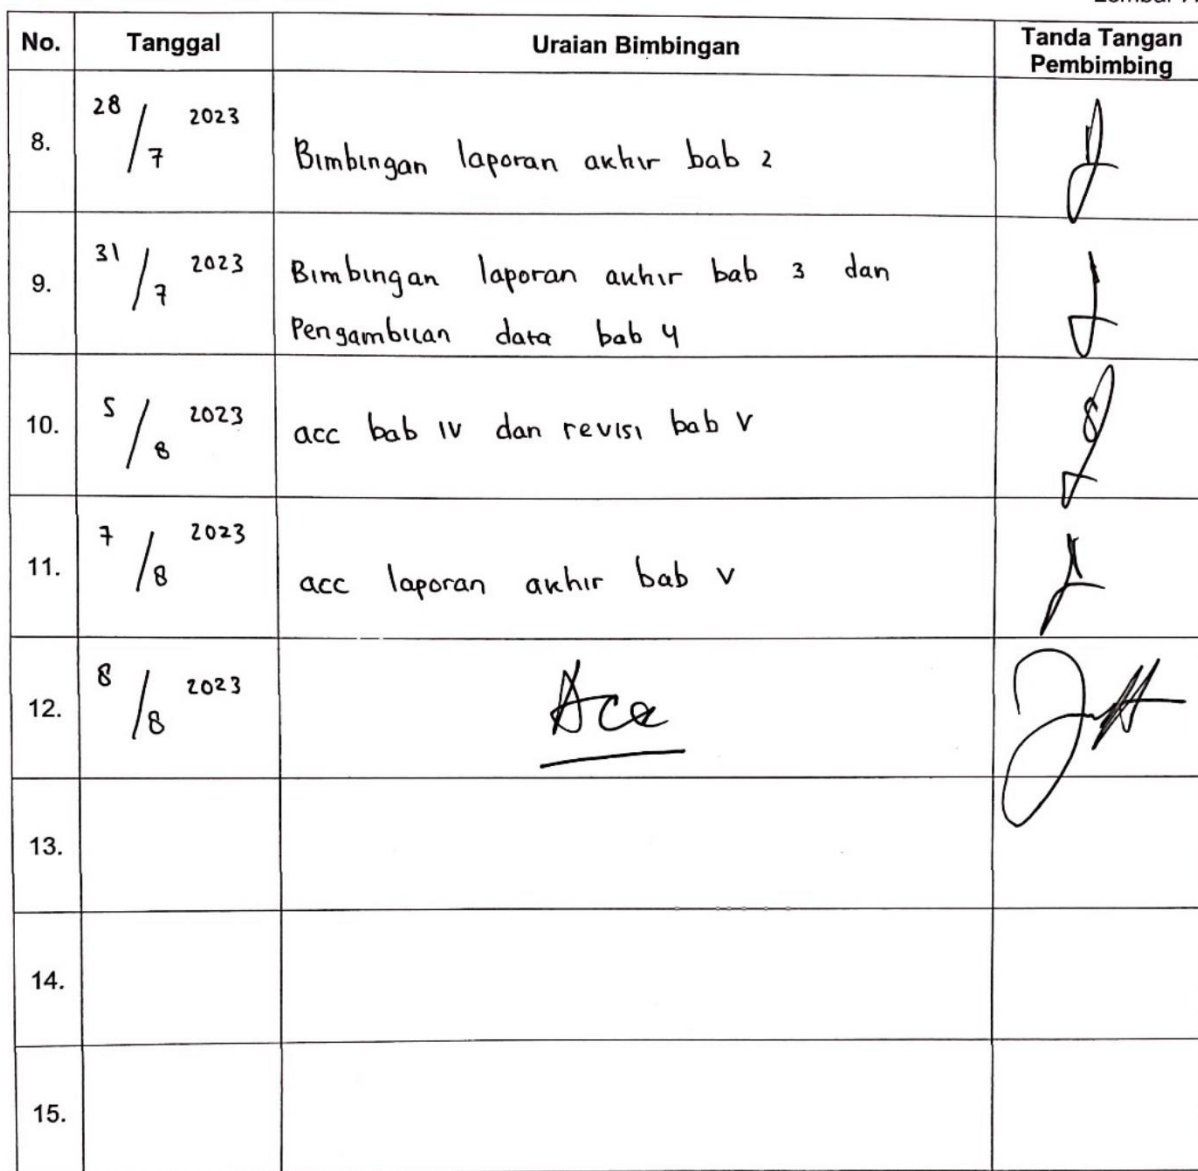 No. Tanggal Uraian Bimbingan Tanda Tangan
Pembimbing
8. 28/7 2023 Bimbingan laporan akhir bab 2
9. 31/7 2023 Bimbingan laporan akhir bab 3 dan
Pengambilan data bab 4
10. 5/8 2023 acc bab IV dan revisi bab V
11. 7/8 2023 acc laporan akhir bab V
12. 8/8 2023 Acc
13.
14.
15.